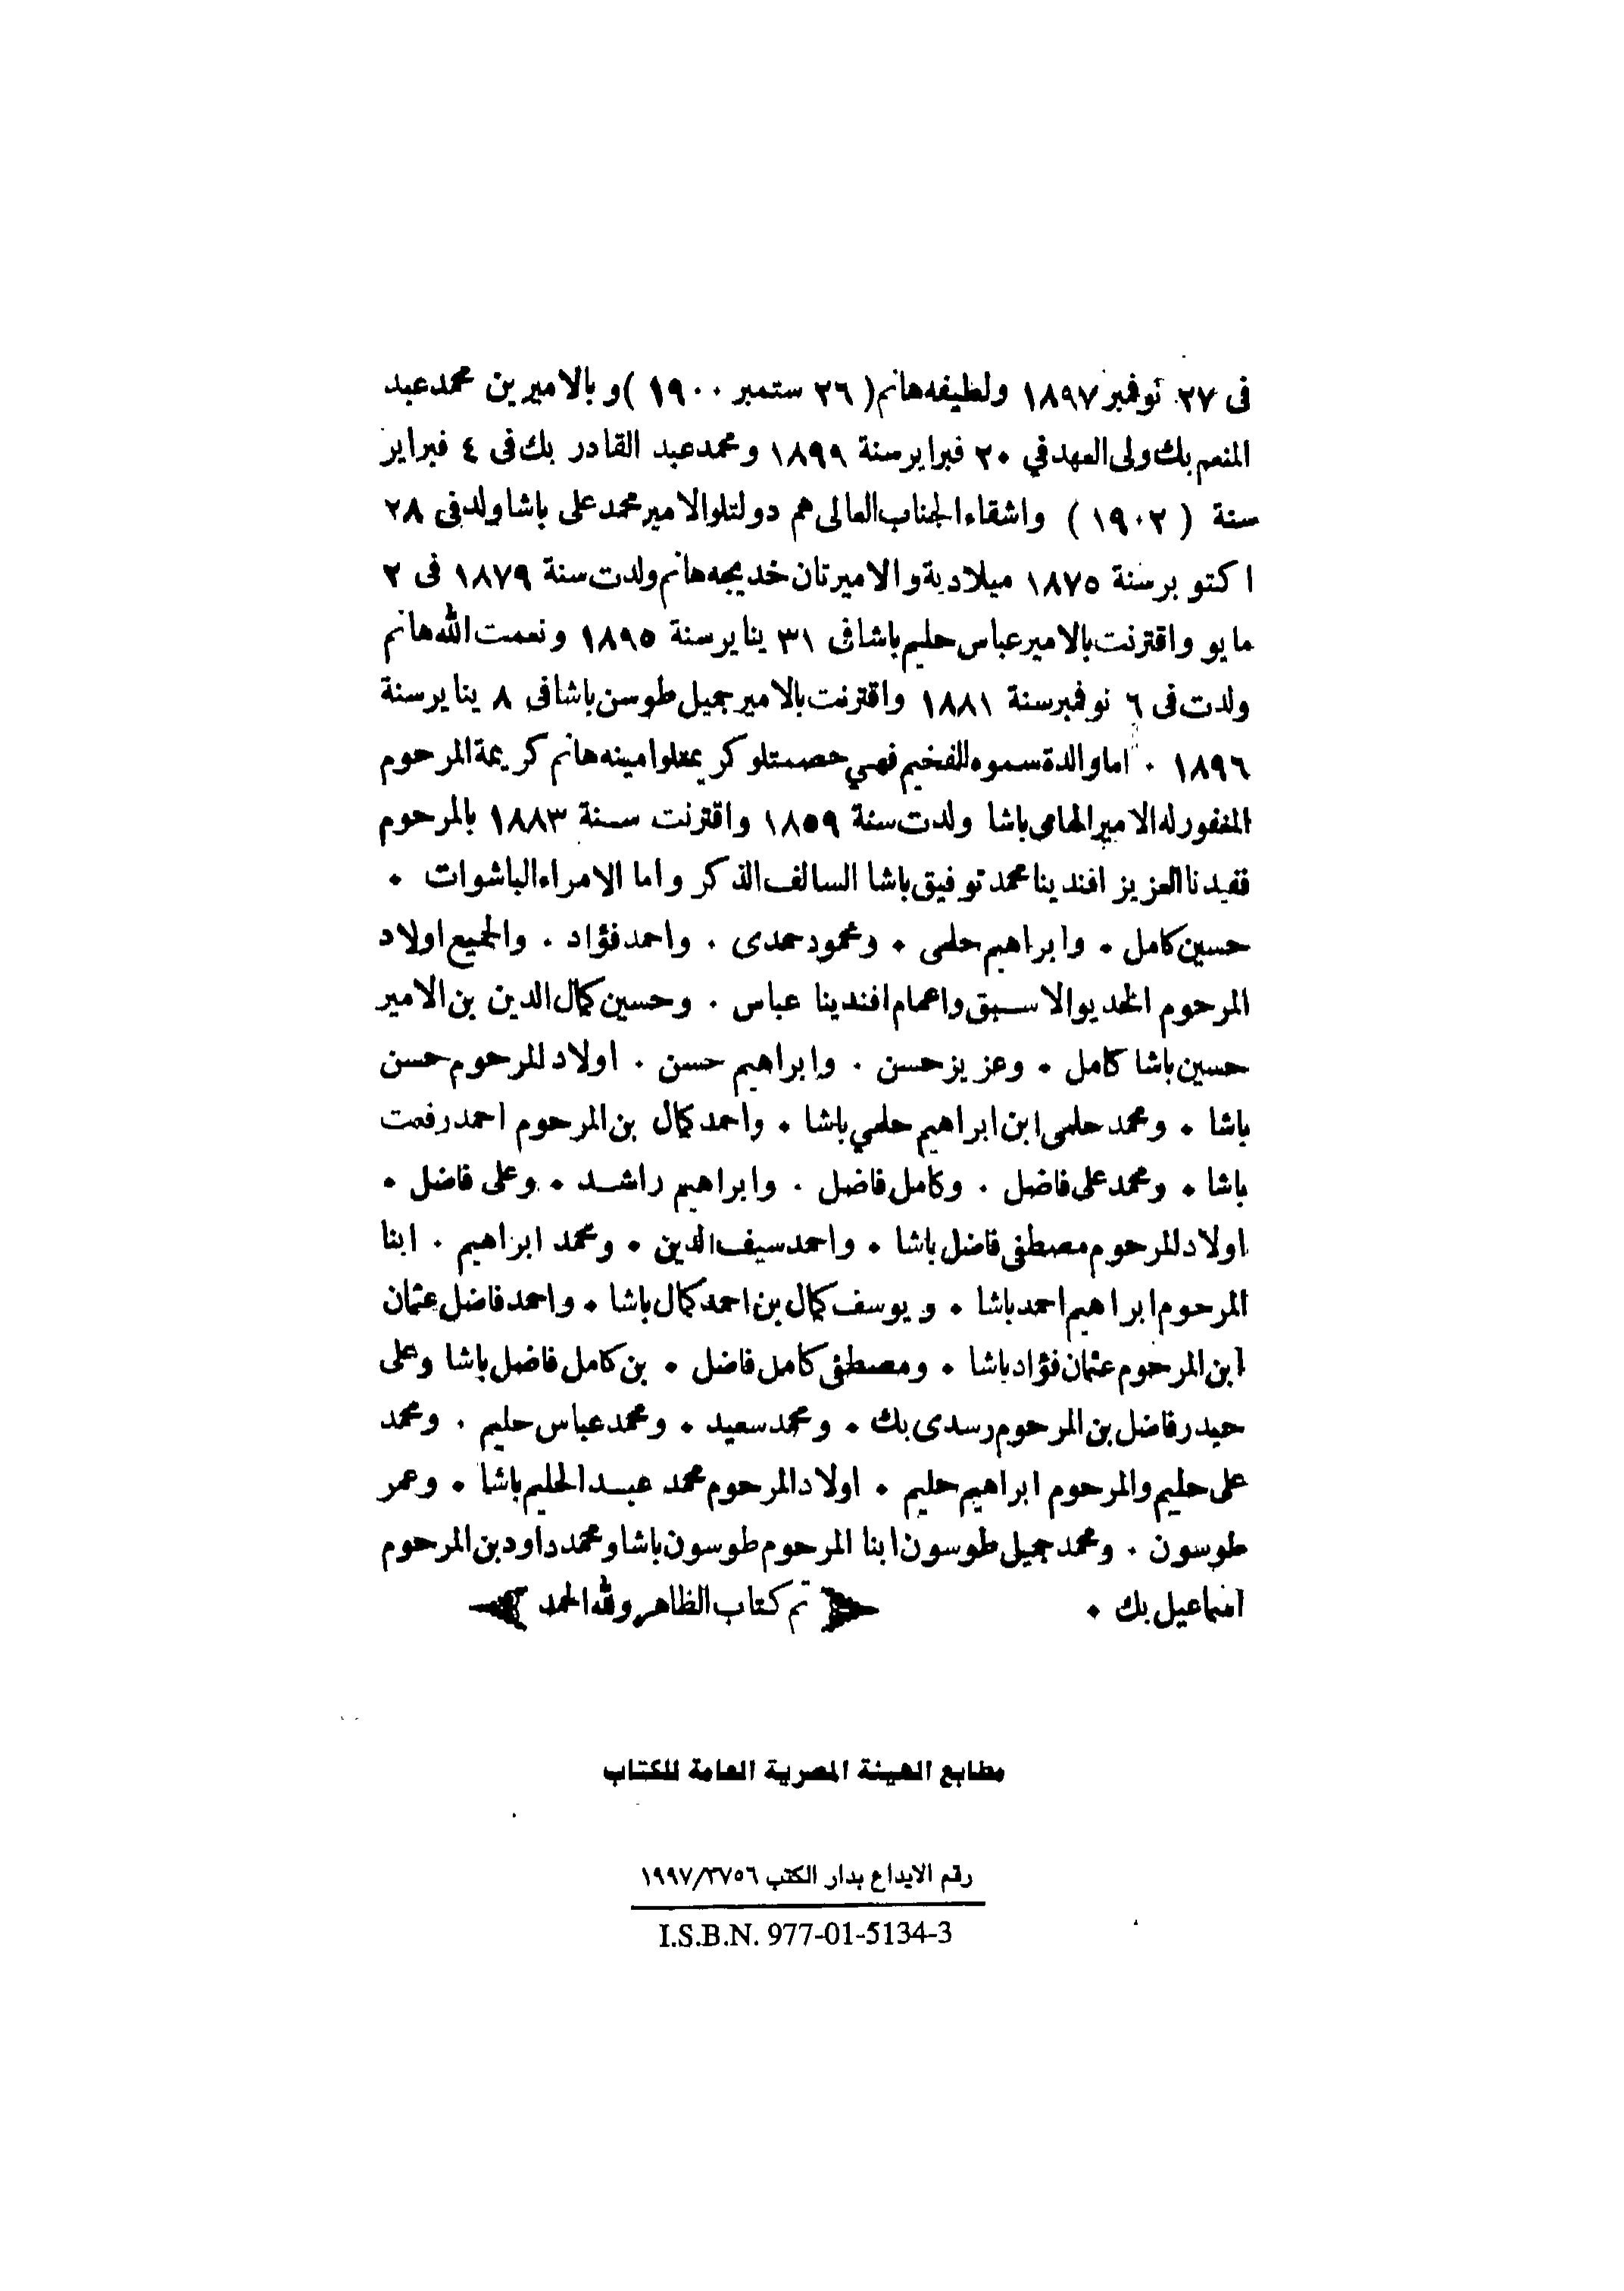 فى ٢٧ نوفمبر ١٨٩٧ ولطيفه هانم ( ٢٦ ستمبر ١٩٠٠ ) و بالاميرين محمد عبد
المنعم بك ولى العهد في ٢٠ فبراير سنة ١٨٩٩ ومحمد عبد القادر بك فى ٤ فبراير
سنة ( ١٩٠٢ ) واشقاء الجناب العالى هم دولتلو الامير محمد على باشا ولد فى ٢٨
اكتوبر سنة ١٨٧٥ ميلادية والاميرتان خديجه هانم ولدت سنة ١٨٧٩ فى ٢
مايو واقترنت بالامير عباس حليم باشا فى ٣١ يناير سنة ١٨٩٥ ونعمت الله هانم
ولدت فى ٦ نوفمبر سنة ١٨٨١ واقترنت بالامير جميل طوسن باشا فى ٨ يناير سنة
١٨٩٦ . اما والدة سموه الفخيم فهي عصمتلو كريمتلو امينه هانم كريمة المرحوم
المغفور له الامير الهامى باشا ولدت سنة ١٨٥٩ واقترنت سنة ١٨٨٣ بالمرحوم
فقيدنا العزيز افندينا محمد توفيق باشا السالف الذكر واما الامراء الباشوات .
حسين كامل . وابراهيم حلمى . ومحمود حمدى . واحمد فؤاد . والجميع اولاد
المرحوم الخديو الاسبق واعمام افندينا عباس . وحسين كمال الدين بن الامير
حسين باشا كامل . وعزيز حسن . وابراهيم حسن . اولاد المرحوم حسن
باشا . ومحمد حلمى ابن ابراهيم حلمي باشا . واحمد كمال بن المرحوم احمد رفعت
باشا . ومحمد على فاضل . وكامل فاضل . وابراهيم راشد . وعلى فاضل .
اولاد المرحوم مصطفى فاضل باشا . واحمد سيف الدين . ومحمد ابراهيم . ابنا
المرحوم ابراهيم احمد باشا . ويوسف كمال بن احمد كمال باشا . واحمد فاضل عثمان
ابن المرحوم عثمان فؤاد باشا . ومصطفى كامل فاضل . بن كامل فاضل باشا وعلى
حيدر فاضل بن المرحوم رسدى بك . ومحمد سعيد . ومحمد عباس حليم . ومحمد
على حليم والمرحوم ابراهيم حليم . اولاد المرحوم محمد عبد الحليم باشا . وعمر
طوسون . ومحمد جميل طوسون ابنا المرحوم طوسون باشا ومحمد داود بن المرحوم
اسماعيل بك . تم كتاب الظاهر ولله الحمد
مطابع الهيئة المصرية العامة للكتاب
رقم الايداع بدار الكتب ١٩٩٧/٢٧٥٦
I.S.B.N. 977-01-5134-3